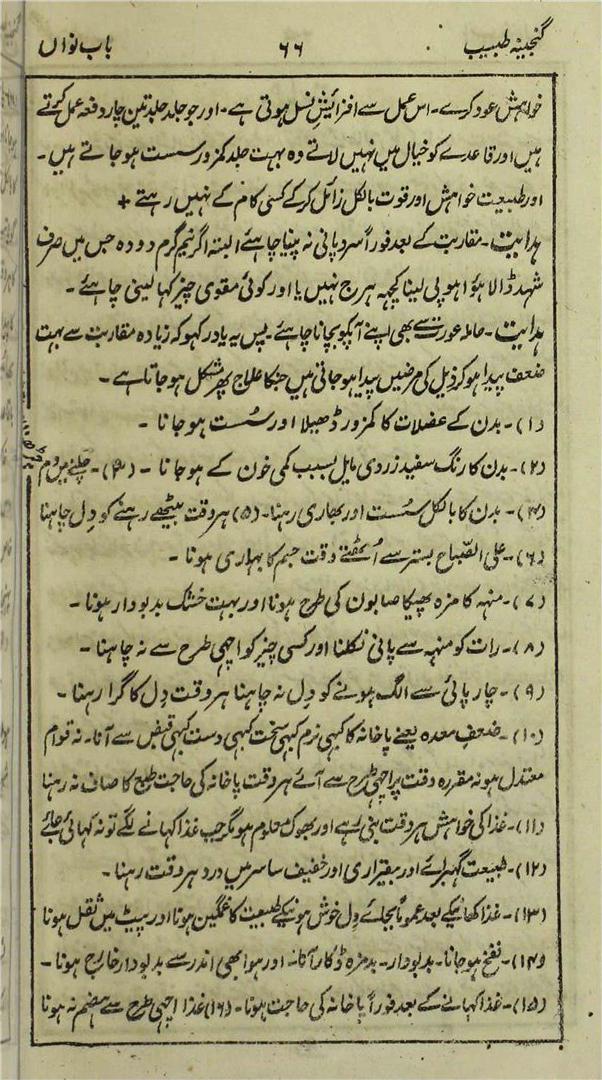 گنجینہ طبیب ۶۶ باب نواں
خواہش عود کرے۔ اس عمل سے افزائیش نسل ہوتی ہے۔ اور جو جلد جلد تین چار دفعہ عمل کرتے
ہیں اور قاعدے کو خیال میں نہیں لاتے وہ بہت جلد کمزور سست ہو جاتے ہیں۔
اور طبیعت خواہش اور قوت بالکل زائل کر کے کسی کام کے نہیں رہتے +
ہدایت۔ مقاربت کے بعد فوراً سرد پانی نہ پینا چاہئے البتہ اگر نیم گرم دودہ جس میں صرف
شہد ڈالا ہؤا ہو پی لینا کچہہ ہرج نہیں یا اور کوئی مقوی چیز کہا لینی چاہئے۔
ہدایت۔ حاملہ عورت سے بھی اپنے آپکو بچانا چاہئے۔ پس یہ یاد رکہو کہ زیادہ مقاربت سے بہت
ضعف پیدا ہو کر ذیل کی مرضیں پیدا ہو جاتی ہیں جنکا علاج پھر مشکل ہو جاتا ہے۔
(۱)۔ بدن کے عضلات کا کمزور ڈھیلا اور سُست ہو جانا ۔
(۲)۔ بدن کا رنگ سفید زردی مایل بسبب کمی خون کے ہو جانا ۔ (۳)۔ چلنے میں دم
(۴)۔ بدن کا بالکل سُست اور بھاری رہنا۔ (۵) ہر وقت بیٹھے رہنے کو دِل چاہنا
(۶)۔ علی الصّباح بستر سے اُٹھتے وقت جسم کا بہاری ہونا ۔
(۷)۔ منہہ کا مزہ پھیکا صابون کی طرح ہونا اور بہت خشک بدبودار ہونا ۔
(۸)۔ رات کو منہہ سے پانی نکلنا اور کسی چیز کو اچہی طرح سے نہ چاہنا ۔
(۹)۔ چارپائی سے الگ ہونے کو دِل نہ چاہنا ہر وقت دِل کا گرا رہنا ۔
(۱۰)۔ ضعف معدہ یعنے پاخانہ کا کبہی نرم کبہی سخت کبہی دست کبہی قبض سے آنا۔ نہ قوام
معتدل ہو نہ مقررہ وقت پر اچہی طرح سے آئے ہر وقت پاخانہ کی حاجت طبع کا صاف نہ رہنا
(۱۱)۔ غذا کی خواہش ہر وقت بنی رہے اور بھوک معلوم ہو مگر جب غذا کہانے لگے تو نہ کہائی جائے
(۱۲)۔ طبیعت گہبرائے اور بیقراری اور خفیف سا سر میں درد ہر وقت رہنا۔
(۱۳)۔ غذا کھانیکے بعد عموماً بجائے دِل خوش ہونیکے طبیعت کا غمگین ہونا اور پیٹ میں ثقل ہونا
(۱۴)۔ نفخ ہو جانا۔ بدبودار۔ بدمزہ ڈکار آنا اور ہوا بھی اندر سے بدبودار خارج ہونا ۔
(۱۵)۔ غذا کہانے کے بعد فوراً پاخانہ کی حاجت ہونا۔ (۱۶) غذا اچہی طرح سے ہضم نہ ہونا